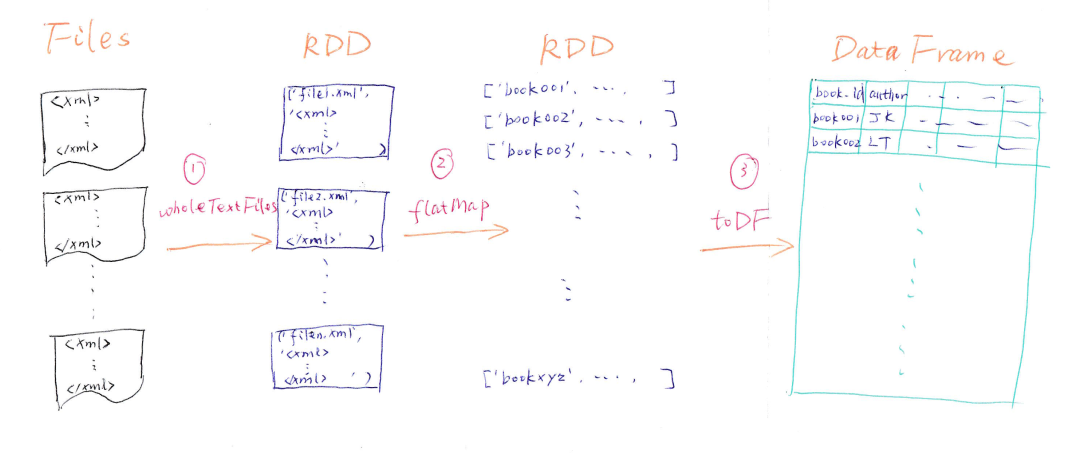 Files
<xml>
</xml>
<xml>
</xml>
<xml>
</xml>
①
wholeTextFiles
RDD
('file1.xml',
'<xml>
</xml>' )
('file2.xml',
'<xml>
</xml>' )
('filen.xml',
'<xml>
</xml> ' )
②
flatMap
RDD
['book001', ...., ]
['book002', ...., ]
['book003', ...., ]
['bookxyz', ...., ]
③
toDF
DataFrame
book_id author
book001 JK
book002 LT